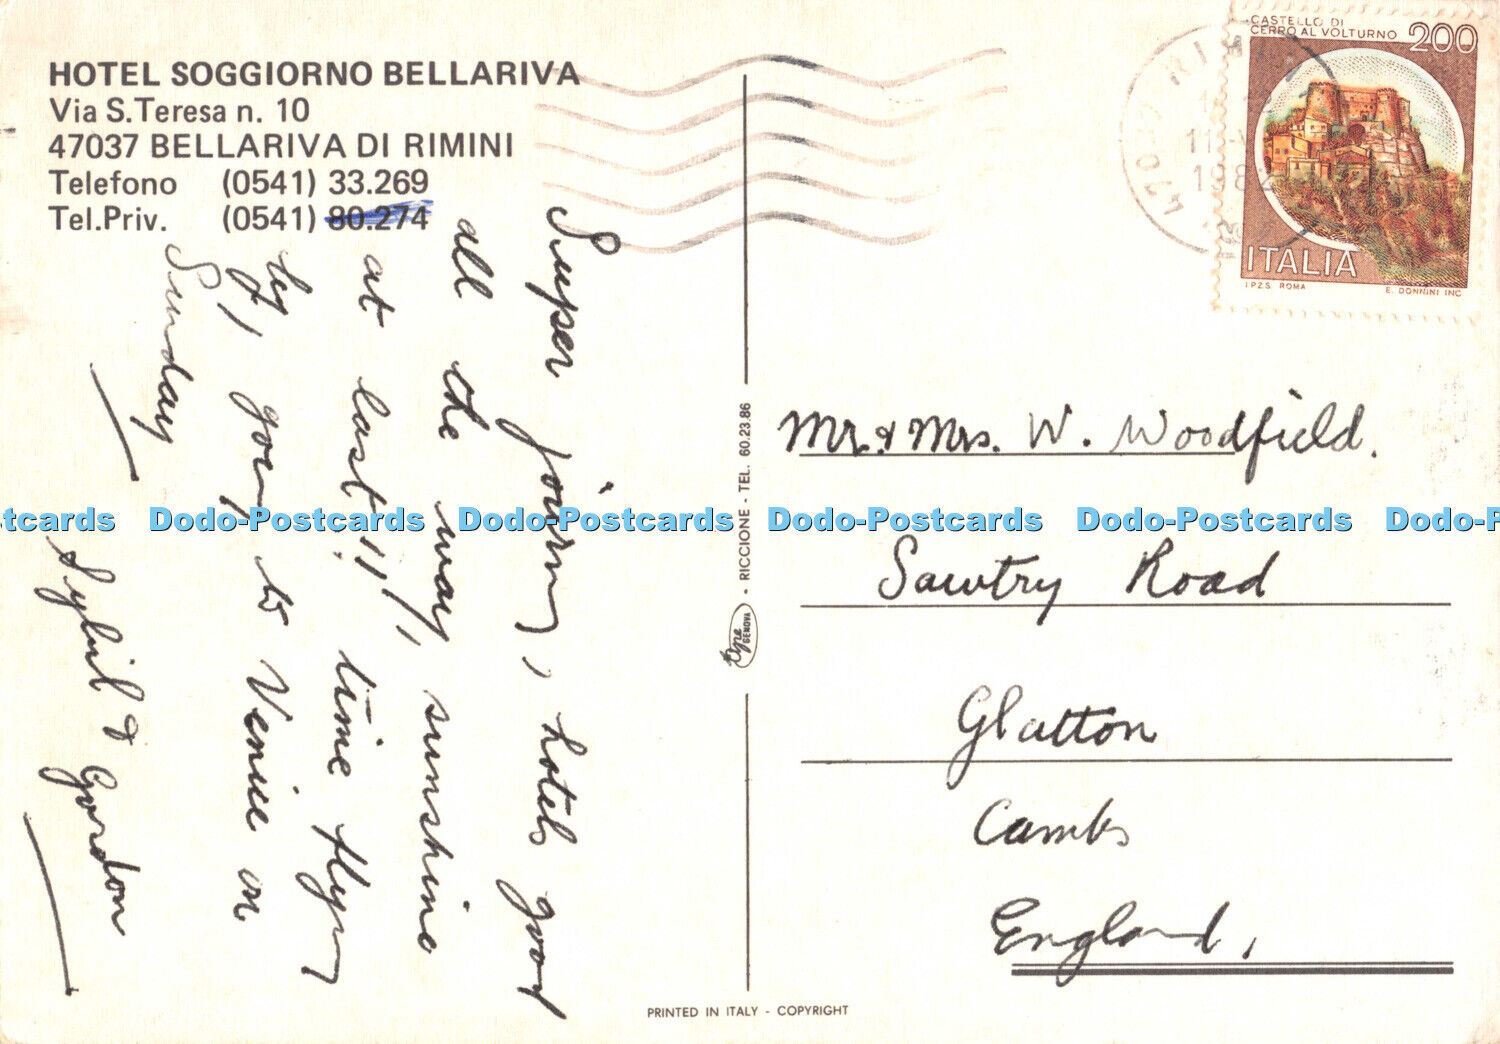 HOTEL SOGGIORNO BELLARIVA
Via S.Teresa n. 10
47037 BELLARIVA DI RIMINI
Telefono (0541) 33.269
Tel.Priv. (0541) 80.274
Super journ, hotels good
all the way, sunshine
at last!!!, time flyn
by, goin to Venice on
Sunday
Sybil & Gordon
CASTELLO DI
CERRO AL VOLTURNO 200
ITALIA
I.P.Z.S. ROMA E. DONNINI INC.
47037 RIMINI
1982
Mr. & Mrs. W. Woodfield.
Sawtry Road
Glatton
Cambs
England,
RICCIONE - TEL. 60.23.86
GENOVA
PRINTED IN ITALY - COPYRIGHT
tcards Dodo-Postcards Dodo-Postcards Dodo-Postcards Dodo-Postcards Dodo-P